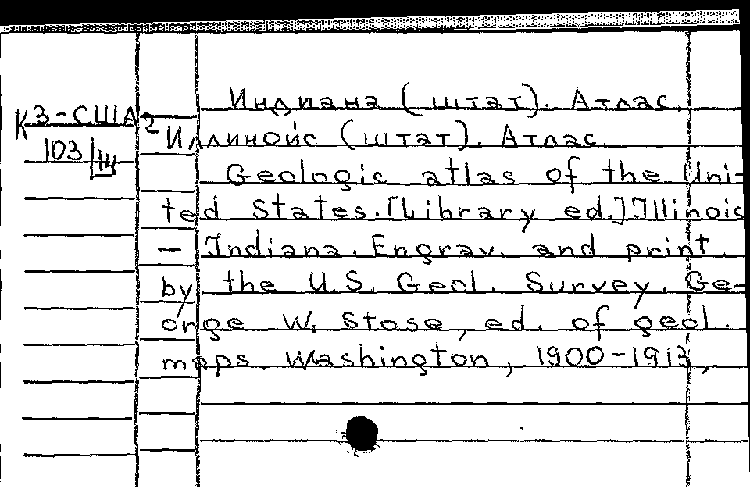 Индиана (штат). Атлас.
К3-США2
Иллинойс (штат). Атлас.
103/III
Geologic atlas of the Uni-
ted States. [Library ed.] Illinois
- Indiana. Engrav. and print.
by the U.S. Geol. Survey. Ge-
orge W. Stose, ed. of geol.
maps. Washington, 1900-1913,